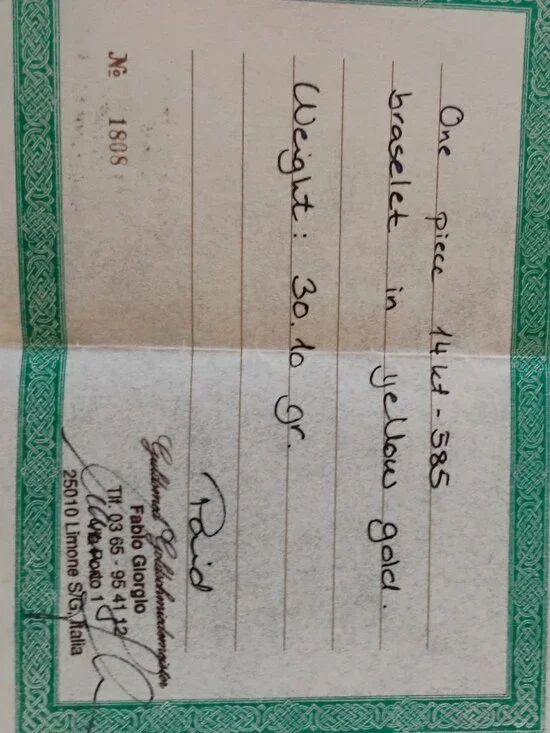 One piece 14kt-585
braselet in yellow gold.
Weight: 30.10 gr.
Paid
№ 1808
Guldsmed Goldschmiedemeister
Fabio Giorgio
Tlf. 03 65 - 95 41 12
Via Porto 1
25010 Limone S/G, Italia